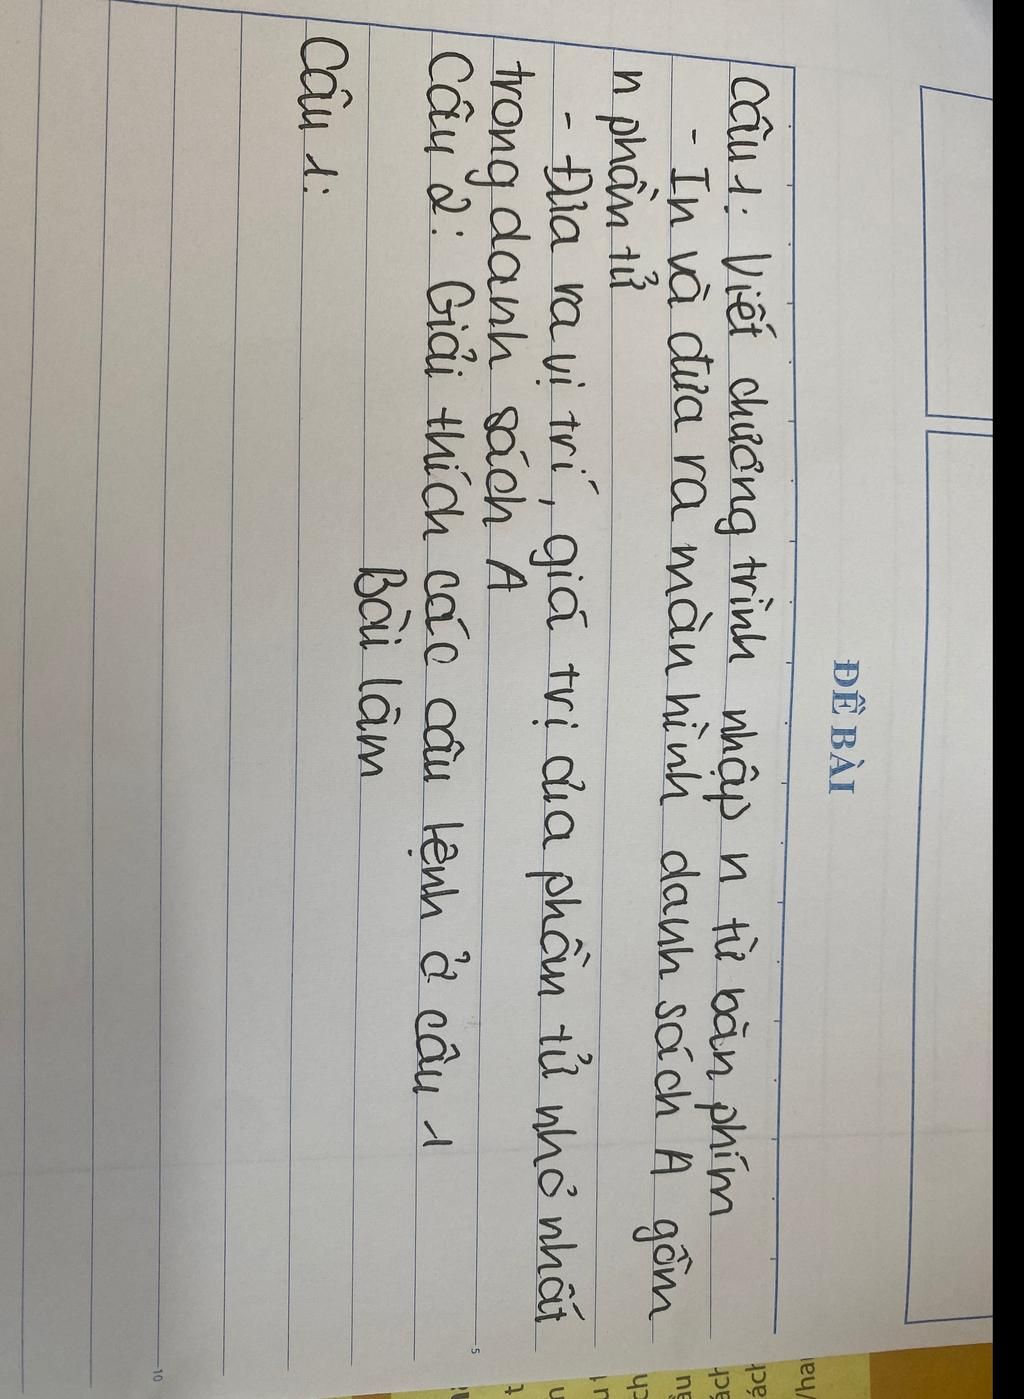 ĐỀ BÀI
Câu 1: Viết chương trình nhập n từ bàn phím
- In và đưa ra màn hình danh sách A gồm
n phần tử
- Đưa ra vị trí, giá trị của phần tử nhỏ nhất
trong danh sách A
Câu 2: Giải thích các câu lệnh ở câu 1
Bài làm
Câu 1:
5
10